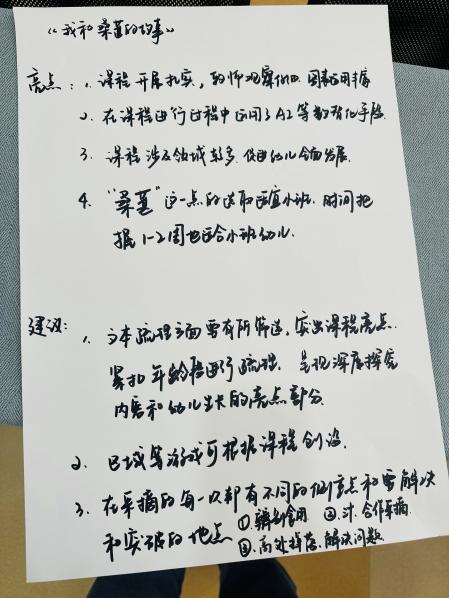 《我和桑葚的故事》
亮点：1. 课程开展扎实，教师观察细致，图表运用丰富
2. 在课程进行过程中运用了AI等数智化手段
3. 课程涉及领域较多，促进幼儿全面发展.
4. “桑葚”这一点的选取适宜小班，时间把
握1-2周也适合小班幼儿.
建议：1. 文本梳理方面要有所筛选，突出课程亮点.
紧扣年龄段进行梳理. 呈现深度探究
内容和幼儿生长的亮点部分.
2. 区域等游戏可根据课程创设.
3. 在采摘的每一次都有不同的侧重点和要解决
和突破的地点 ①辨别食用 ②计.合作采摘
③.高处掉落.解决问题.